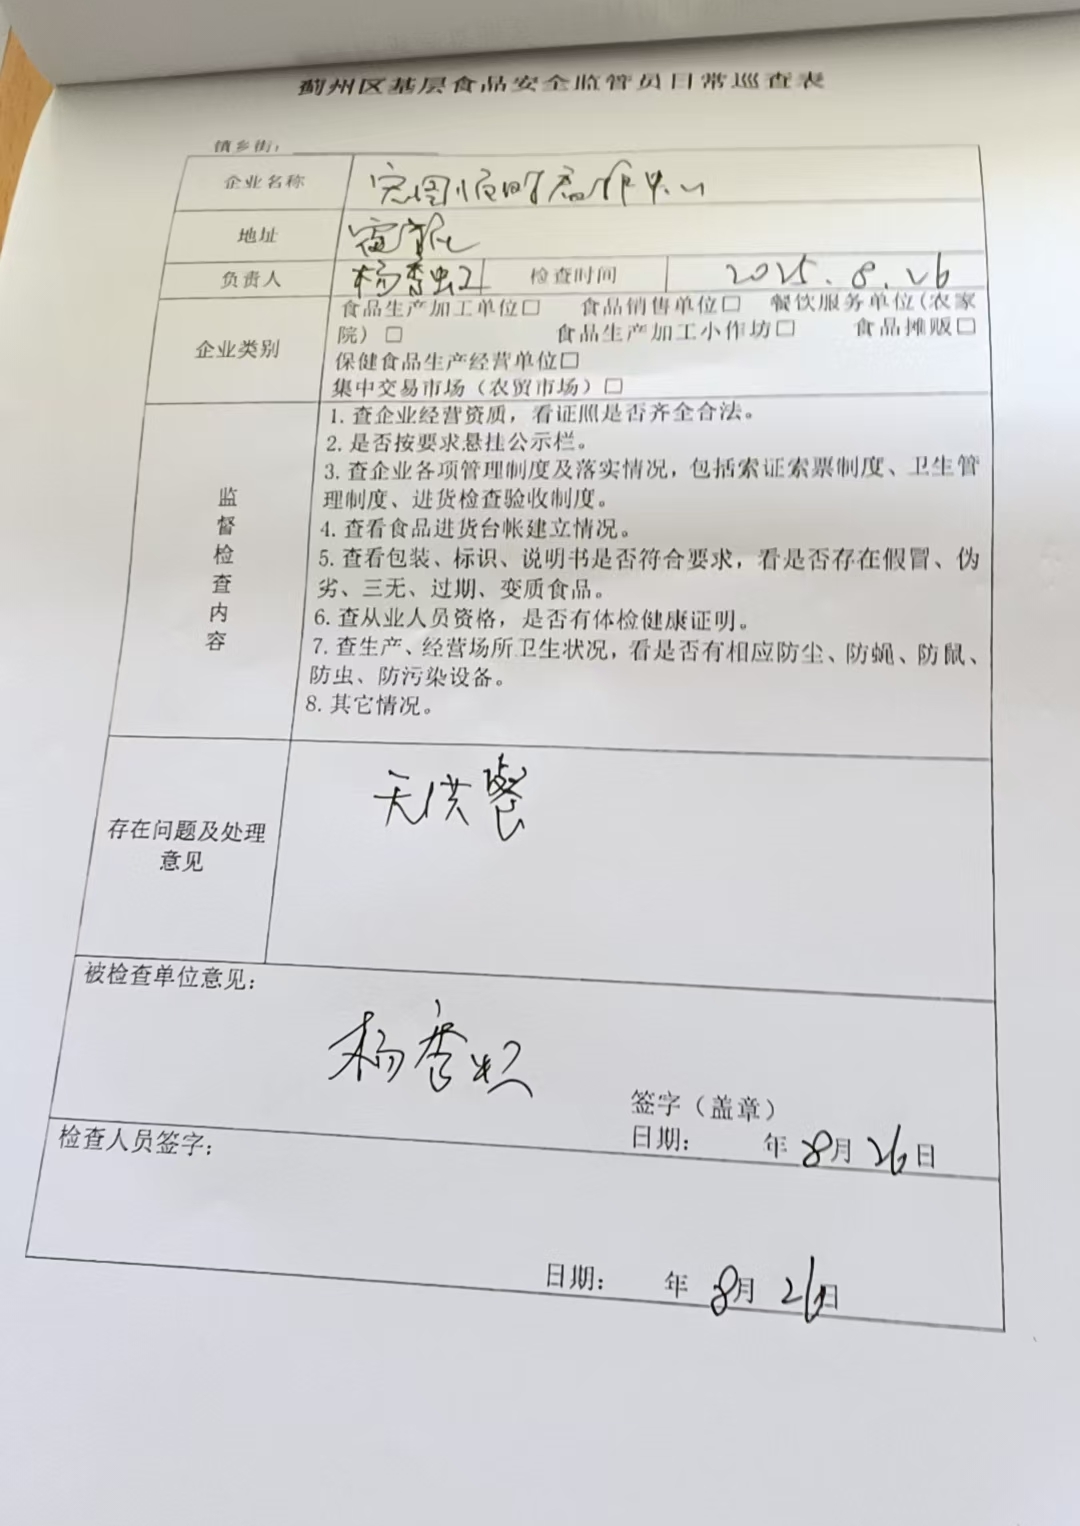 蓟州区基层食品安全监管员日常巡查表
镇乡街：
企业名称
地址
负责人 杨香 检查时间 2025.8.26
企业类别
食品生产加工单位□ 食品销售单位□ 餐饮服务单位（农家
院）□ 食品生产加工小作坊□ 食品摊贩□
保健食品生产经营单位□
集中交易市场（农贸市场）□
监督检查内容
1. 查企业经营资质，看证照是否齐全合法。
2. 是否按要求悬挂公示栏。
3. 查企业各项管理制度及落实情况，包括索证索票制度、卫生管
理制度、进货检查验收制度。
4. 查看食品进货台帐建立情况。
5. 查看包装、标识、说明书是否符合要求，看是否存在假冒、伪
劣、三无、过期、变质食品。
6. 查从业人员资格，是否有体检健康证明。
7. 查生产、经营场所卫生状况，看是否有相应防尘、防蝇、防鼠、
防虫、防污染设备。
8. 其它情况。
存在问题及处理
意见
无供餐
被检查单位意见：
杨香
签字（盖章）
日期： 年 8月 26日
检查人员签字：
日期： 年 8月 26日